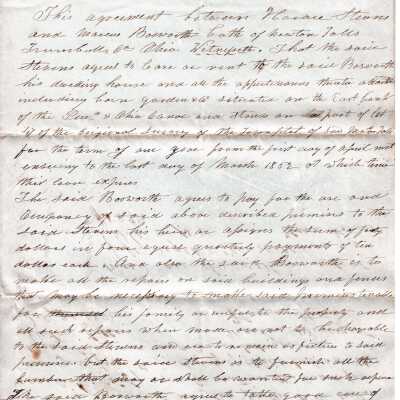 This agreement between Horace Stevens
and Marcus Bosworth both of Newton Falls
Trumbull Co Ohio Witnesseth. That the said
Stevens agrees to lease or rent to the said Bosworth
his dwelling house and all the appurtenances thereto attached
including barn garden &c situated on the East bank
of the Penn & Ohio Canal and stands on part of Lot
of the original survey of the Township of Newton
for the term of one year from the first day of april next
ensueing to the last day of March 1852 at which time
this lease expires
The said Bosworth agrees to pay for the use and
occupancy of said above described premises to the
said Stevens his heirs or assigns the sum of forty
dollars in four equal quarterly payments of ten
dollars each. And also the said Bosworth is to
make all the repairs on said buildings and fences
that may be necessary to make said premises
for his family or usefull to the property and
all said repairs when made are not to be chargeable
to the said Stevens and are to remain as fixtures to said
premises but the said Stevens is to furnish all the
lumber that may or shall be wanted for such repairs
The said Bosworth agrees to take good care of